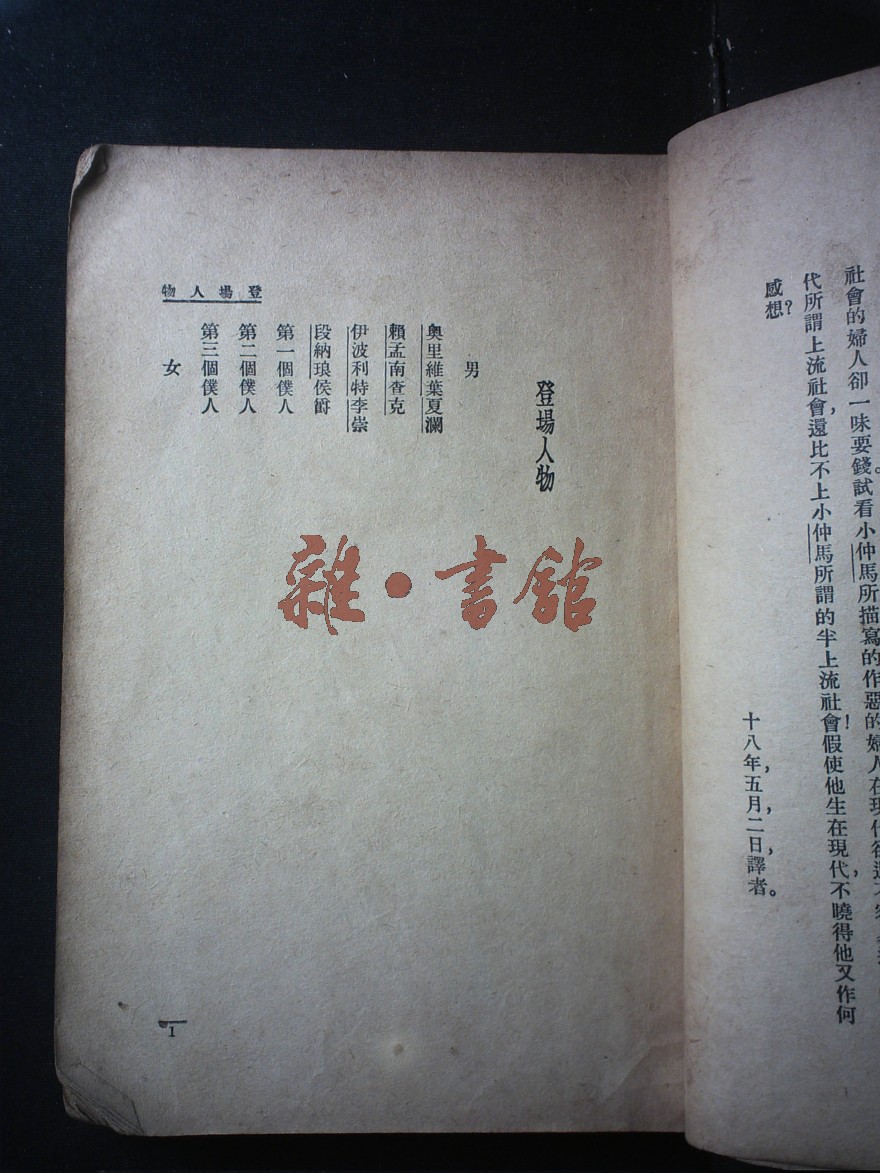 社會的婦人卻一味要錢。試看小仲馬所描寫的作惡的婦人在現代
代所謂上流社會，還比不上小仲馬所謂的半上流社會！假使他生在現代，不曉得他又作何
感想？
十八年，五月，二日，譯者。
登場人物
登場人物
男
奧里維葉夏瀾
賴孟南查克
伊波利特李崇
段納琅侯爵
第一個僕人
第二個僕人
第三個僕人
女
1
雜·書館